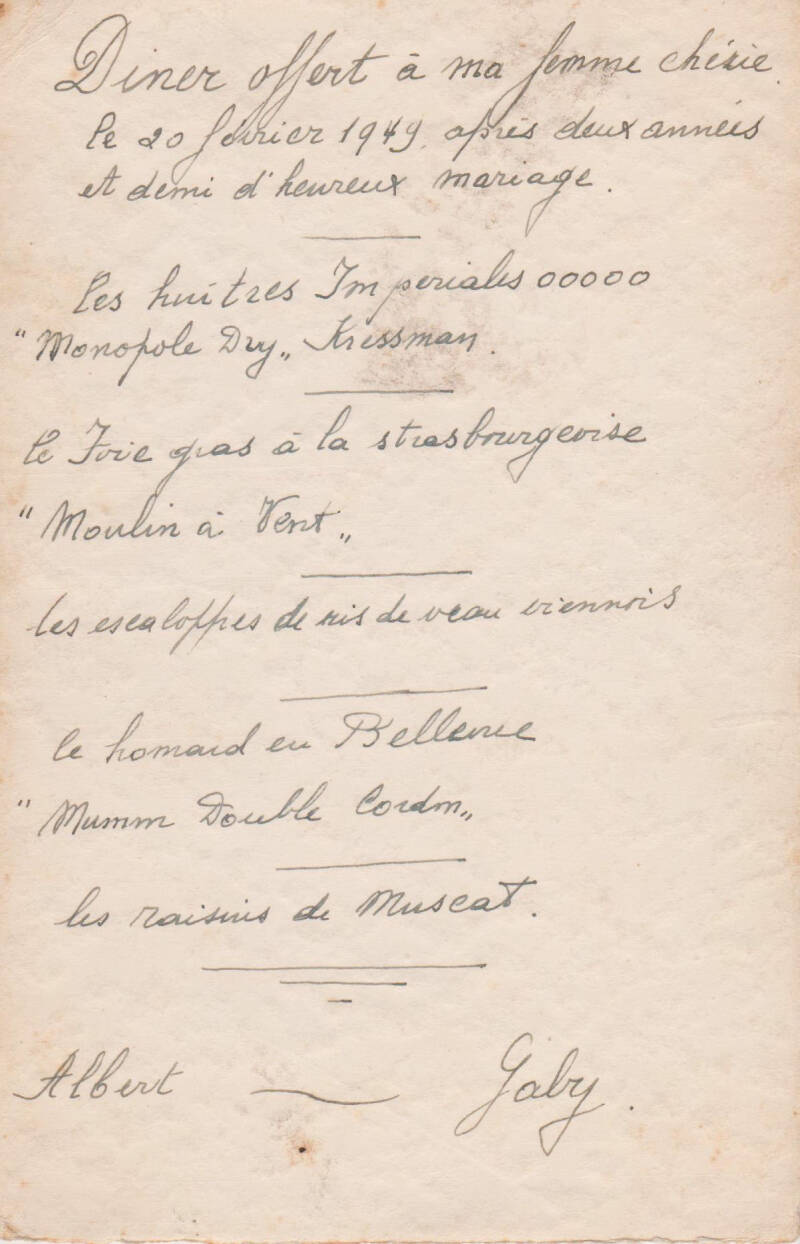 Diner offert à ma femme chérie.
le 20 février 1949. après deux années
et demi d'heureux mariage.
les huîtres Imperiales 00000
"Monopole Dry„ Kressman.
le Foie gras à la strasbourgeoise
"Moulin à Vent„
les escaloppes de ris de veau viennois
le homard en Bellevue
"Mumm Double Cordon„
les raisins de Muscat.
Albert — Gaby.